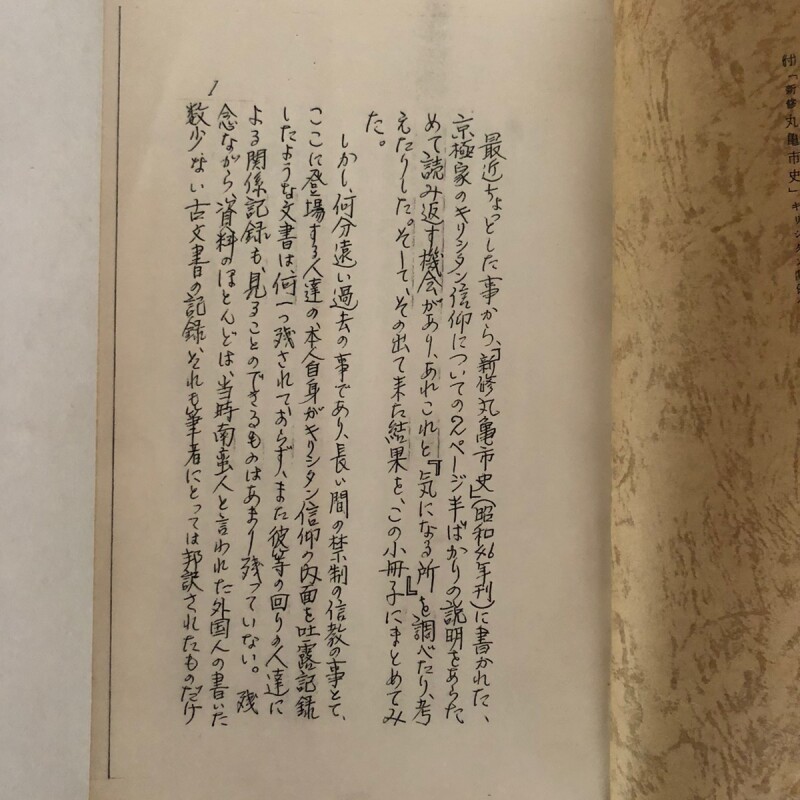 付「新修丸亀市史」キリシタン
最近ちょっとした事から、「新修丸亀市史」(昭和46年刊)に書かれた、
京極家のキリシタン信仰についての2ページ半ばかりの説明をあらた
めて読み返す機会があり、あれこれと『気になる所』を調べたり、考
えたりした。そして、その出て来た結果を、この小冊子にまとめてみ
た。
しかし、何分遠い過去の事であり、長い間の禁制の信教の事とて、
ここに登場する人達の、本人自身がキリシタン信仰の内面を吐露記録
したような文書は、何一つ残されておらず、また彼等の回りの人達に
よる関係記録も、見ることのできるものはあまり残っていない。残
念ながら、資料のほとんどは、当時南蛮人と言われた外国人の書いた
数少ない古文書の記録、それも筆者にとっては邦訳されたものだけ
1